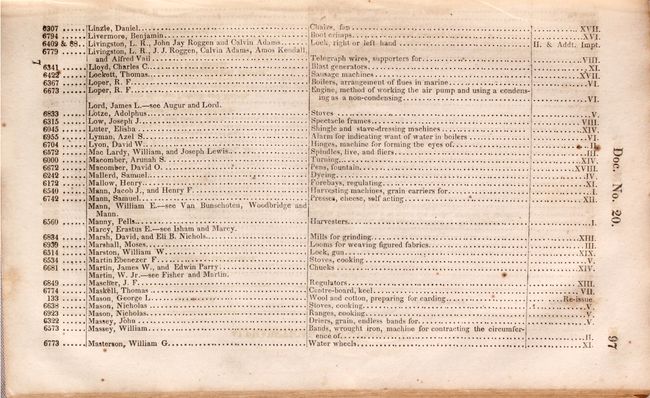 6307 Linzle, Daniel Chairs, fan XVII.
6794 Livermore, Benjamin Boot crimps XVI.
6409 & 88 Livingston, L. R., John Jay Roggen and Calvin Adams Lock, right or left hand II. & Addt. Impt.
6779 Livingston, L. R., J. J. Roggen, Calvin Adams, Amos Kendall,
and Alfred Vail Telegraph wires, supporters for VIII.
6341 Lloyd, Charles C. Blast generators XI.
6422 Lockett, Thomas Sausage machines XVII.
6367 Loper, R. F. Boilers, arrangement of flues in marine VI.
6673 Loper, R. F. Engine, method of working the air pump and using a conden-
ing as a non-condensing VI.
Lord, James L.—see Augur and Lord.
6833 Lotze, Adolphus Stoves V.
6315 Low, Joseph J. Spectacle frames VIII.
6945 Luter, Elisha Shingle and stave-dressing machines XIV.
6955 Lyman, Azel S. Alarm for indicating want of water in boilers VI.
6704 Lyon, David W. Hinges, machine for forming the eyes of II.
6572 Mac Lardy, William, and Joseph Lewis Spindles, live, and fliers III.
6000 Macomber, Arunah S. Turning XIV.
6672 Macomber, David O. Pens, fountain XVIII.
6242 Mallerd, Samuel Dyeing IV.
6172 Mallow, Henry Forebays, regulating XI.
6540 Mann, Jacob J., and Henry F. Harvesting machines, grain carriers for I.
6742 Mann, Samuel Presses, cheese, self acting XII.
Mann, William E.—see Van Bunschoten, Woodbridge and
Mann.
6560 Manny, Pells Harvesters I.
Marcy, Erastus E.—see Isham and Marcy.
6834 Marsh, David, and Eli B. Nichols Mills for grinding XIII.
6939 Marshall, Moses Looms for weaving figured fabrics III.
6514 Marston, William W. Lock, gun XIX.
6534 Martin Ebenezer F. Stoves, cooking V.
6681 Martin, James W., and Edwin Parry Chucks XIV.
Martin, W. Jr.—see Fisher and Martin.
6849 J. F. Regulators XIII.
6774 Maskell, Thomas Centre-board, keel VII.
133 Mason, George I. Wool and cotton, preparing for carding Re-issue.
6638 Mason, Nicholas Stoves, cooking V.
6923 Mason, Nicholas Ranges, cooking V.
6322 Massey, John Driers, grain, endless bands for I.
6573 Massey, William Bands, wrought iron, machine for contracting the circumfer-
ence of II.
6773 Masterson, William G. Water wheels XI.
7
Doc. No. 20.
97